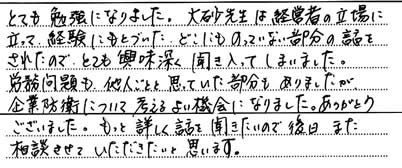 とても勉強になりました。大砂先生は経営者の立場に
立って、経験にもとづいた、どこにものっていない部分の話を
されたので、とても興味深く聞き入ってしまいました。
労務問題も他人ごとと思っていた部分もありましたが
企業防衛について考えるよい機会になりました。ありがとう
ございました。もっと詳しく話を聞きたいので後日また
相談させていただきたいと思います。